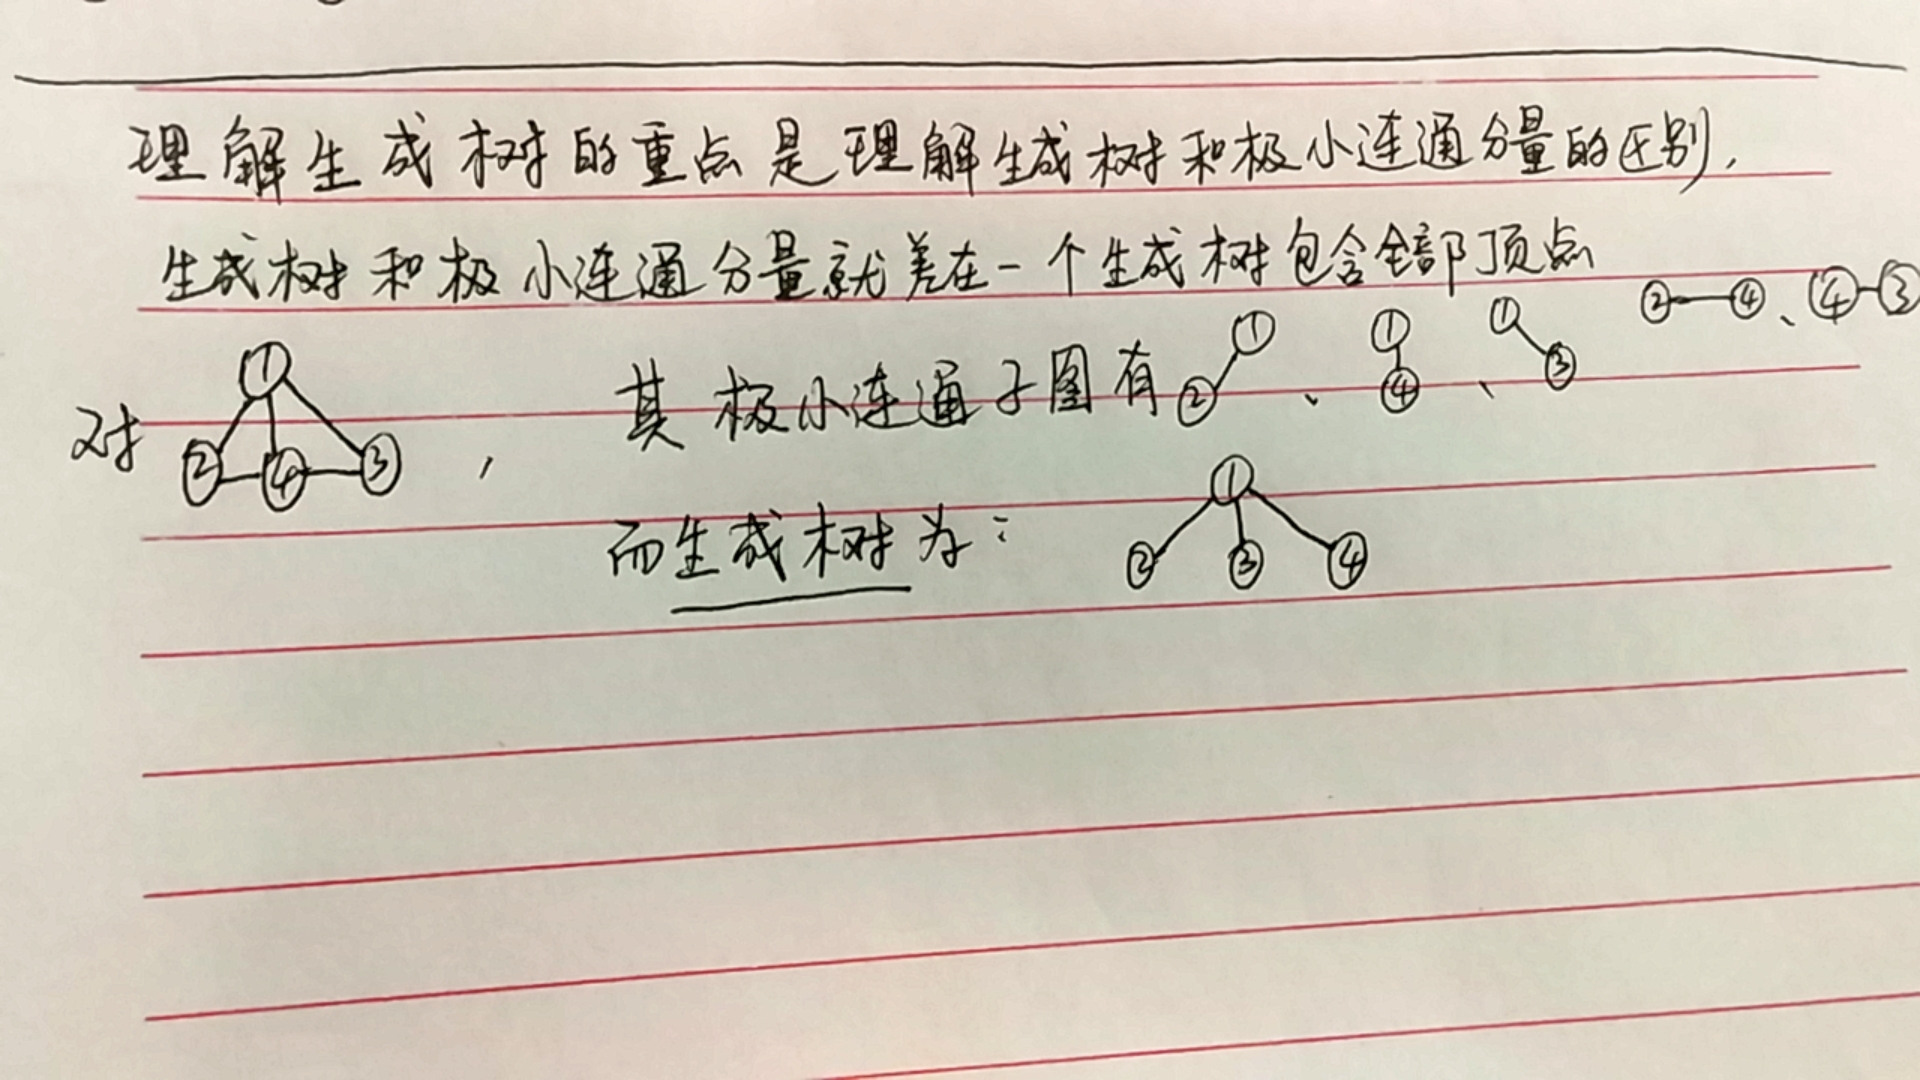 理解生成树的重点是理解生成树和极小连通分量的区别,
生成树和极小连通分量就差在一个生成树包含全部顶点
对 ① ② ④ ③ , 其极小连通子图有 ① ② 、 ① ④ 、 ① ③ ② ④ 、 ④ ③
而生成树为: ① ② ③ ④